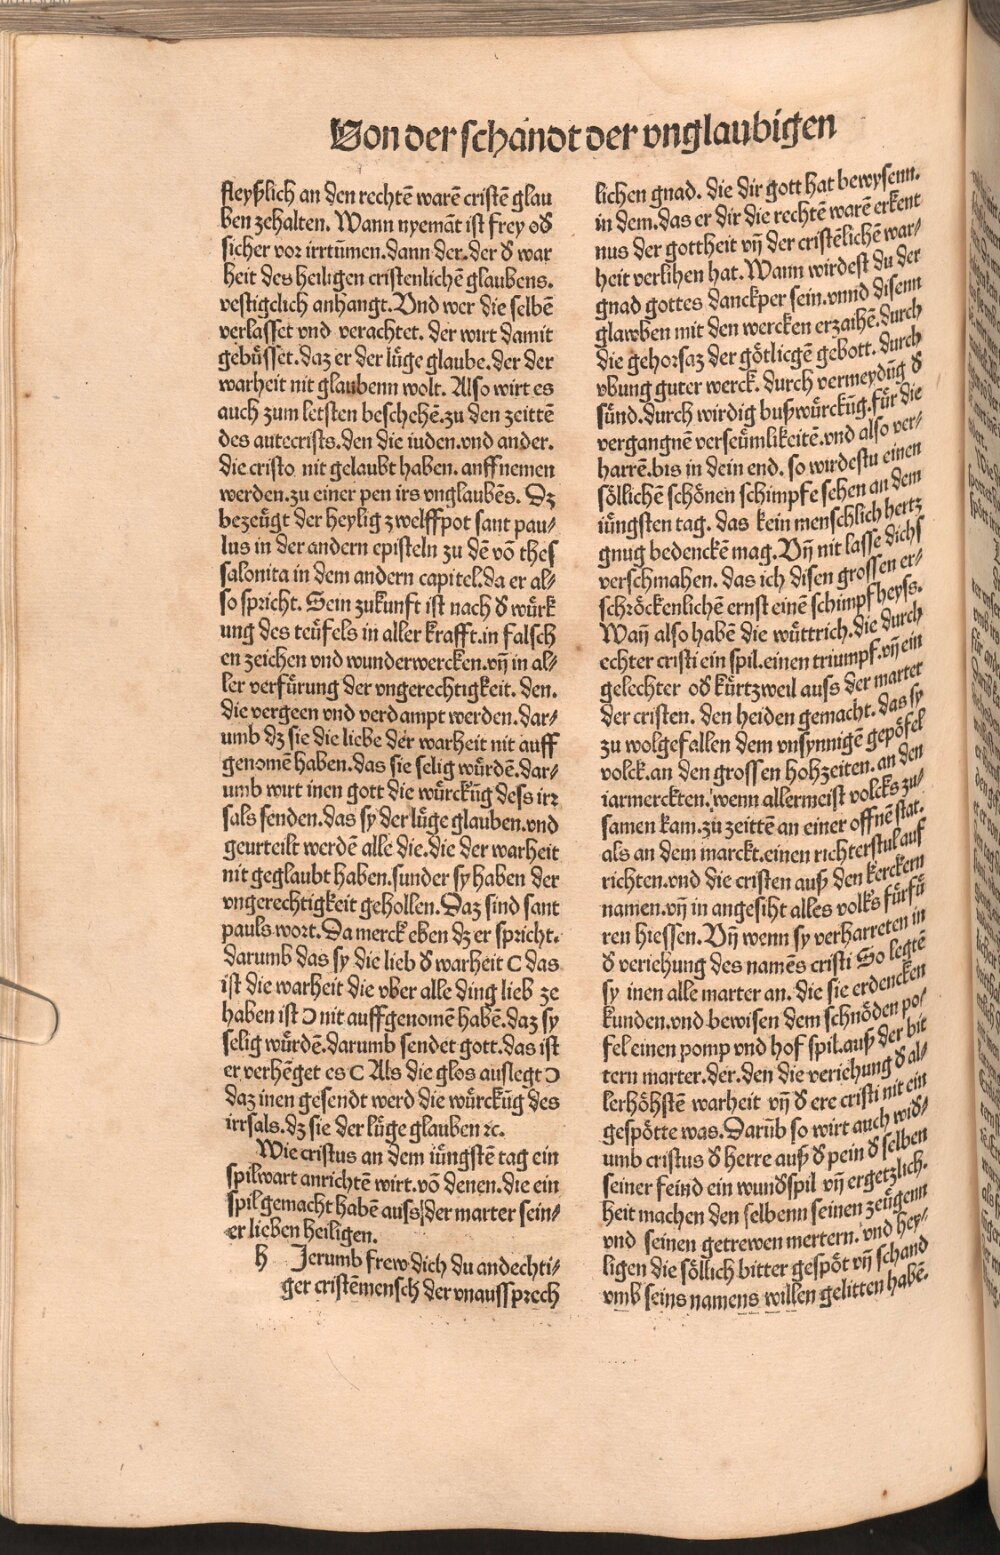 Von der schandt der vnglaubigen
fleyßlich an den rechtē warē cristē glau
ben zehalten. Wann nyemāt ist frey od̕
sicher vor irrtūmen. dann der. der d̕ war
heit des heiligen cristenlichē glaubens.
vestigclich anhangt. Vnd wer die selbē
verlasset vnd verachtet. der wirt damit
gebuͤsset. daz er der luͤge glaube. der der
warheit nit glaubenn wolt. Also wirt es
auch zum letsten beschehē. zu den zeittē
des antecrists. den die iuden. vnd ander.
die cristo nit gelaubt haben. auffnemen
werden. zu einer pen irs vnglaubēs. Dz
bezeuͤgt der heylig zwelffpot sant pau⸗
lus in der andern episteln zu dē vō thes
salonita in dem andern capitel. da er al⸗
so spricht. Sein zukunft ist nach d̕ wuͤrk
ung des teuͤfels in aller krafft. in falsch
en zeichen vnd wunderwercken. vn̄ in al⸗
ler verfuͤrung der vngerechtigkeit. den.
die vergeen vnd verdampt werden. dar⸗
umb dz sie die liebe der warheit nit auff
genomē haben. das sie selig wuͤrdē. dar⸗
umb wirt inen gott die wuͤrckūg dess irr
sals senden. das sy der luͤge glauben. vnd
geurteilt werdē alle die. die der warheit
nit geglaubt haben. sunder sy haben der
vngerechtigkeit gehollen. Daz sind sant
pauls wort. Da merck eben dz er spricht.
darumb das sy die lieb d̕ warheit C das
ist die warheit die vber alle ding lieb ze
haben ist Ɔ nit auffgenomē habē. daz sy
selig wuͤrdē. darumb sendet gott. das ist
er verhēget es C Als die glos auslegt Ɔ
daz inen gesendt werd die wuͤrckūg des
irrsals. dz sie der luͤge glauben ꝛc.
Wie cristus an dem iuͤngstē tag ein
spilwart anrichtē wirt. vō denen. die ein
spil gemacht habē auss der marter sein⸗
er lieben heiligen.
h Jerumb frew dich du andechti⸗
ger cristēmensch der vnaussprech
lichen gnad. die dir gott hat bewysenn.
in dem. das er dir die rechtē warē erkent
nus der gottheit vn̄ der cristēlichē war⸗
heit verlihen hat. Wann wirdest du der
gnad gottes danckper sein. vnnd disenn
glawben mit den wercken erzaihē. durch
die gehorsaz der goͤtlicgē gebott. durch
vbung guter werck. durch vermeydūg d̕
suͤnd. durch wirdig bußwuͤrckūg. fuͤr die
vergangnē verseuͤmlikeitē. vnd also ver⸗
harrē. bis in dein end. so wirdestu einen
soͤllichē schoͤnen schimpfe sehen an dem
iuͤngsten tag. das kein menschlich hertz
gnug bedenckē mag. Vn̄ nit lasse dichs
verschmahen. das ich disen grossen er⸗
schroͤckenlichē ernst einē schimpf heyss.
Wan̄ also habē die wuͤttrich. die durch
echter cristi ein spil. einen triumpf. vn̄ ein
gelechter od̕ kuͤrtzweil auss der marter
der cristen. den heiden gemacht. das sy
zu wolgefallen dem vnsynnigē gepoͤfel
volck. an den grossen hohzeiten. an den
iarmerckten. wenn allermeist volcks zu⸗
samen kam. zu zeittē an einer offnē stat.
als an dem marckt. einen richterstul auf
richten. vnd die cristen auß den kerckern
namen. vn̄ in angesiht alles volks fuͤrfuͤ
ren hiessen. Vn̄ wenn sy verharreten in
d̕ veriehung des namēs cristi So legtē
sy inen alle marter an. die sie erdencken
kunden. vnd bewisen dem schnoͤden po⸗
fel einen pomp vnd hof spil. auß der bit
tern marter. der. den die veriehung d̕ al⸗
lerhoͤhstē warheit vn̄ d̕ ere cristi nit ein
gespoͤtte was. Darūb so wirt auch wid̕⸗
umb cristus d̕ herre auß d̕ pein d̕ selben
seiner feind ein wund̕spil vn̄ ergetzlich.
heit machen den selbenn seinen zeuͤgenn
vnd seinen getrewen mertern. vnd hey⸗
ligen die soͤllich bitter gespoͤt vn̄ schand
vmb seins namens willen gelitten habē.